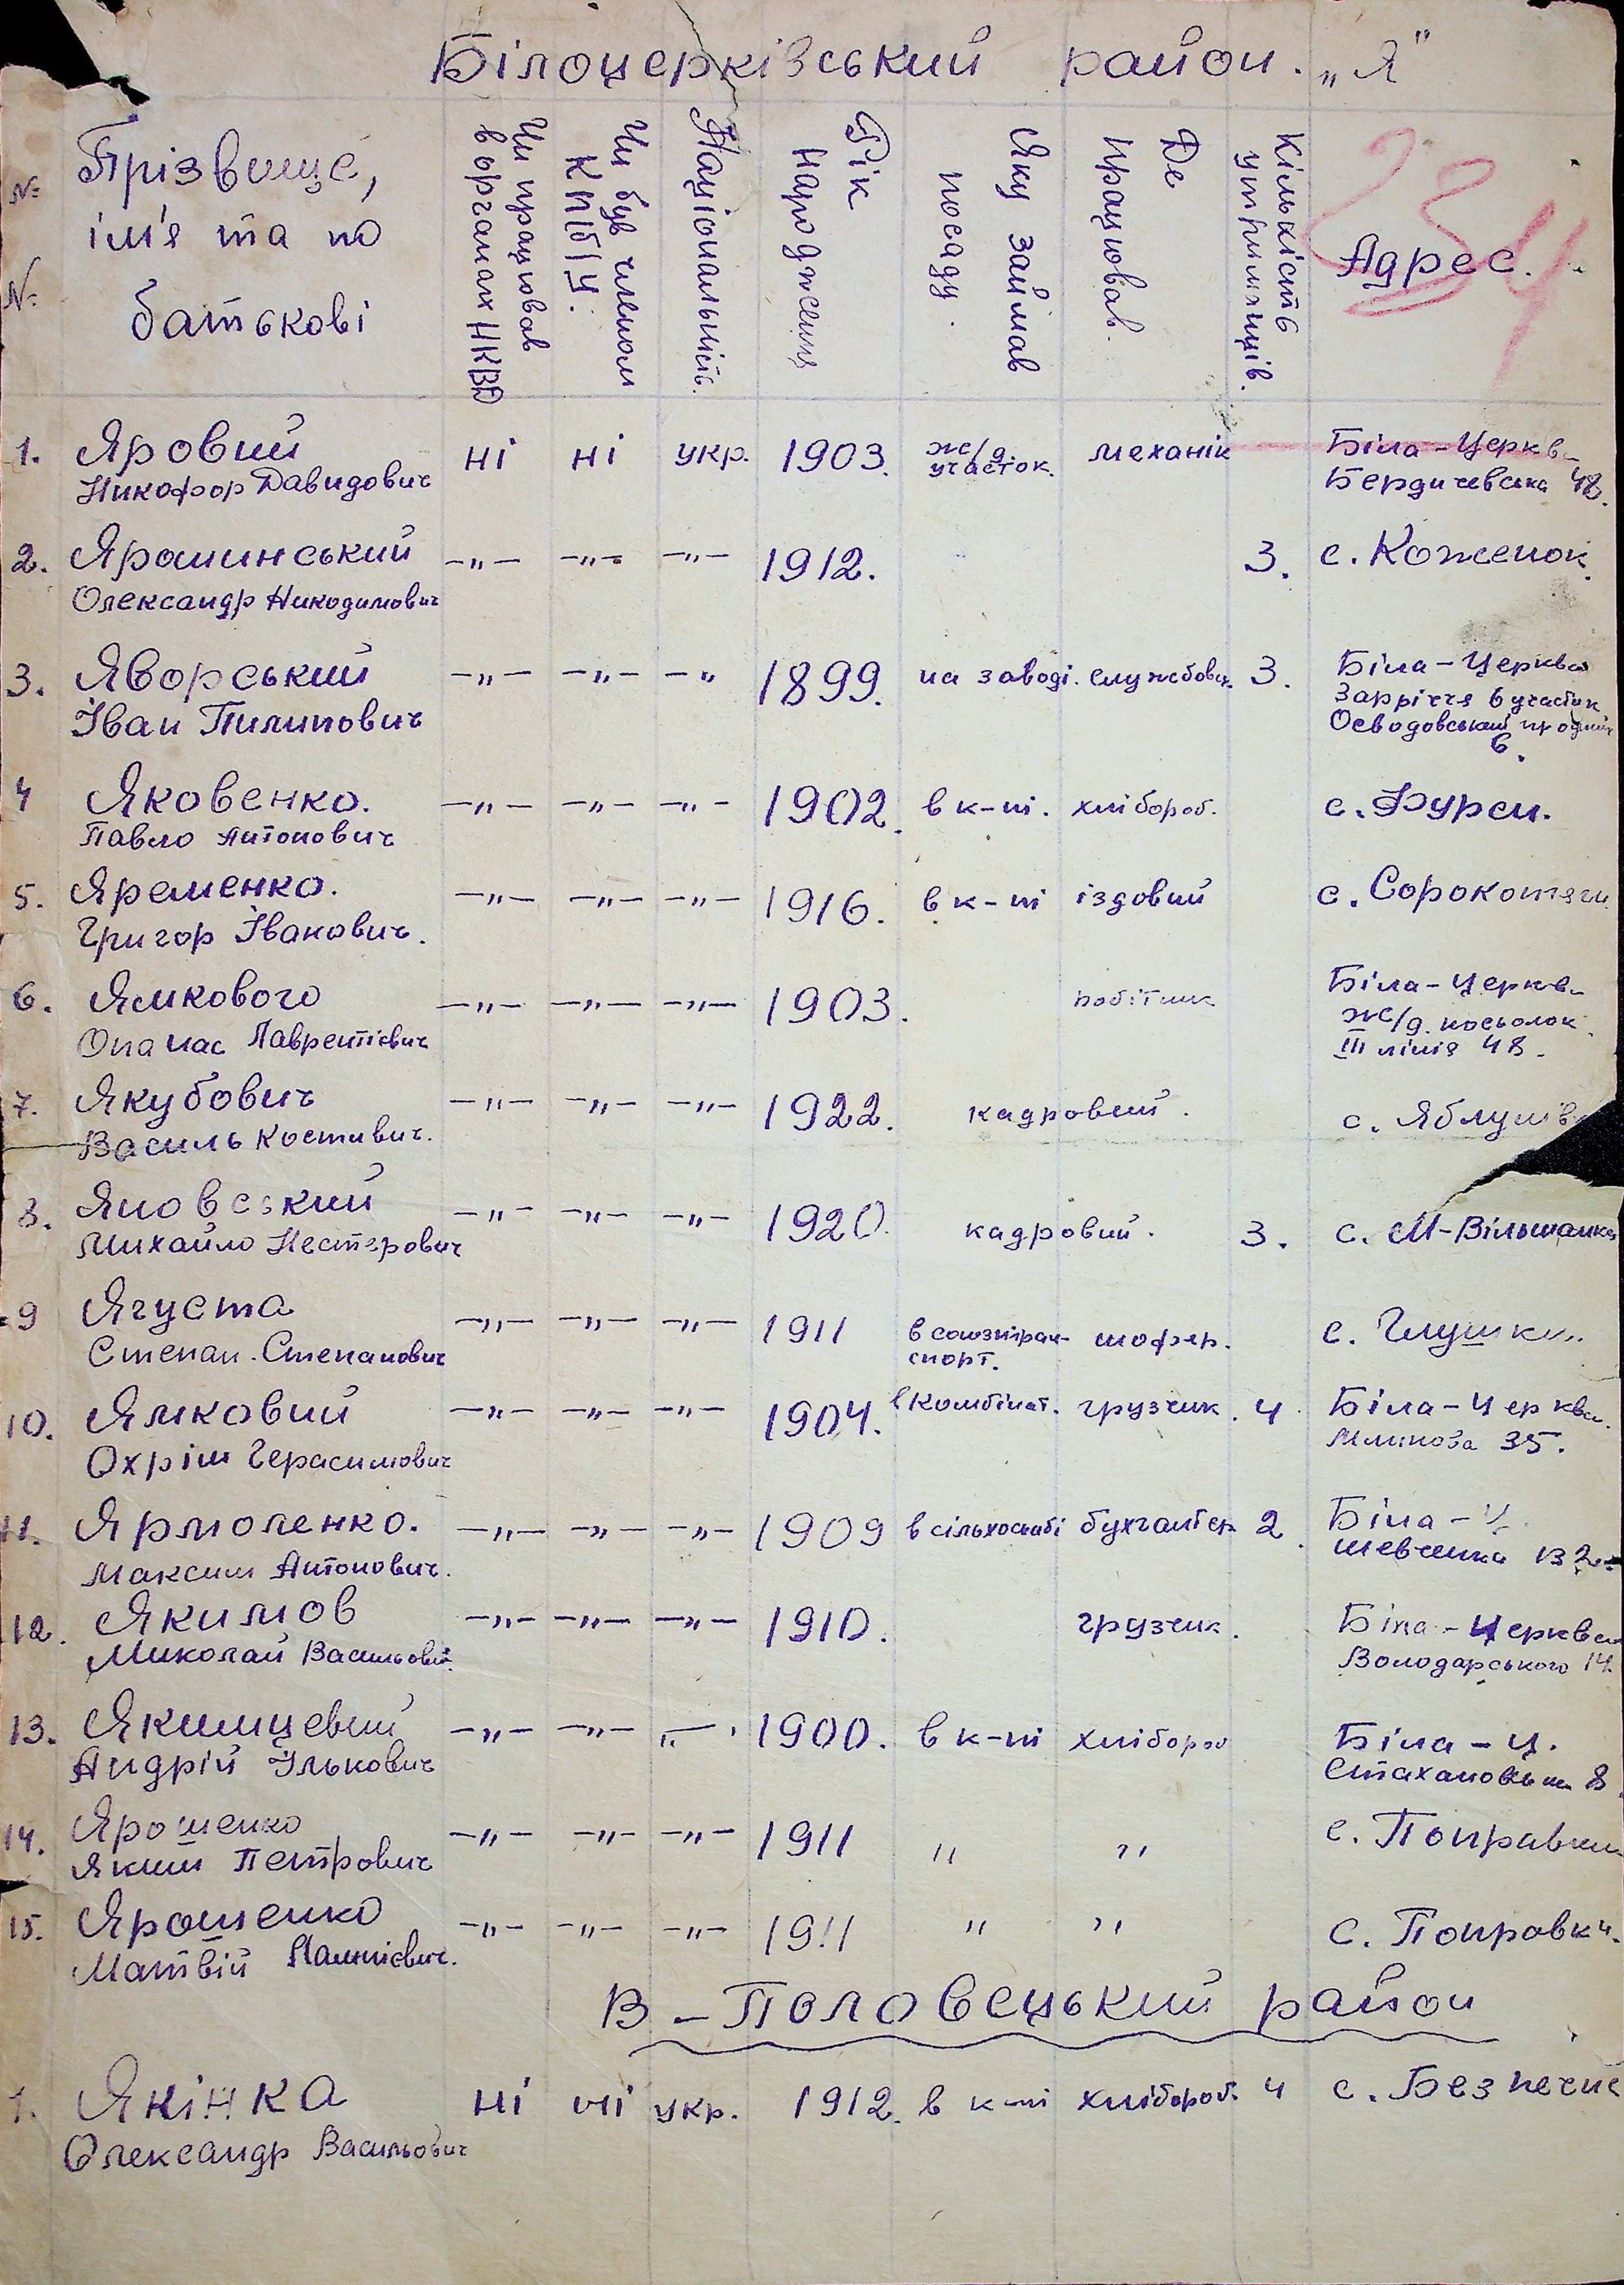 Білоцерківський район. „Я"
234
№ №
Прізвище,
ім'я та по
батькові
Чи працював
в органах НКВД
Чи був членом
КП(б)У.
Національність.
Рік
народження
Яку займав
посаду.
Де
працював.
Кількість
утриманців.
Адрес.
1. Яровий ні ні укр. 1903. ж/д. механік Біла-Церкв
Никофор Давидович участок. Бердичевська 48.
2. Яроминський -„- -„- -„- 1912. 3. с. Коженок
Олександр Никодимович
3. Яворський -„- -„- -„ 1899. на заводі. службовец 3. Біла-Церква
Іван Пилипович Зарріччя 6 участок
Осводовський
6.
4 Яковенко. -„- -„- -„- 1902. в к-пі. хлібороб. с. Фурси.
Павло Антонович
5. Яременко. -„- -„- -„- 1916. в к-пі іздовий с. Сорокотяги
Григор Іванович.
6. Ямкового -„- -„- -„- 1903. робітник Біла-Церкв
Опанас Лаврентієвич ж/д. посьолок
III лінія 48.
7. Якубович -„- -„- -„- 1922. кадровий. с. Яблунів
Василь Костивич.
8. Яновський -„- -„- -„- 1920. кадровий. 3. с. М-Вільшанка
Михайло Нестерович
9 Ягуста -„- -„- -„- 1911 в союзтран- шофер. с. Глушки
Степан. Степанович спорт.
10. Ямковий -„- -„- -„- 1904. в Комбінат. грузчик. 4 Біла-Церква.
Охрім Герасимович 35.
11. Ярмоленко. -„- -„- -„- 1909 в сільхоснабі бухгалтер 2. Біла-Ц.
Максим Антонович. Шевченка
12. Якимов -„- -„- -„- 1910. грузчик. Біла-Церква
Миколай Васильович. Володарського 14.
13. Якимцевий -„- -„- -„- 1900. в к-пі хлібороб Біла-Ц.
Андрій Ількович 8.
14. Ярошенко -„- -„- -„- 1911 „ „ с. Поправки
Яким Петрович
15. Ярошенко -„- -„- -„- 1911 „ „ с. Поправки.
Матвій
В-Половецький район
1. Якінка ні ні укр. 1912. в к-пі хлібороб. 4 с. Безпечне
Олександр Васильович